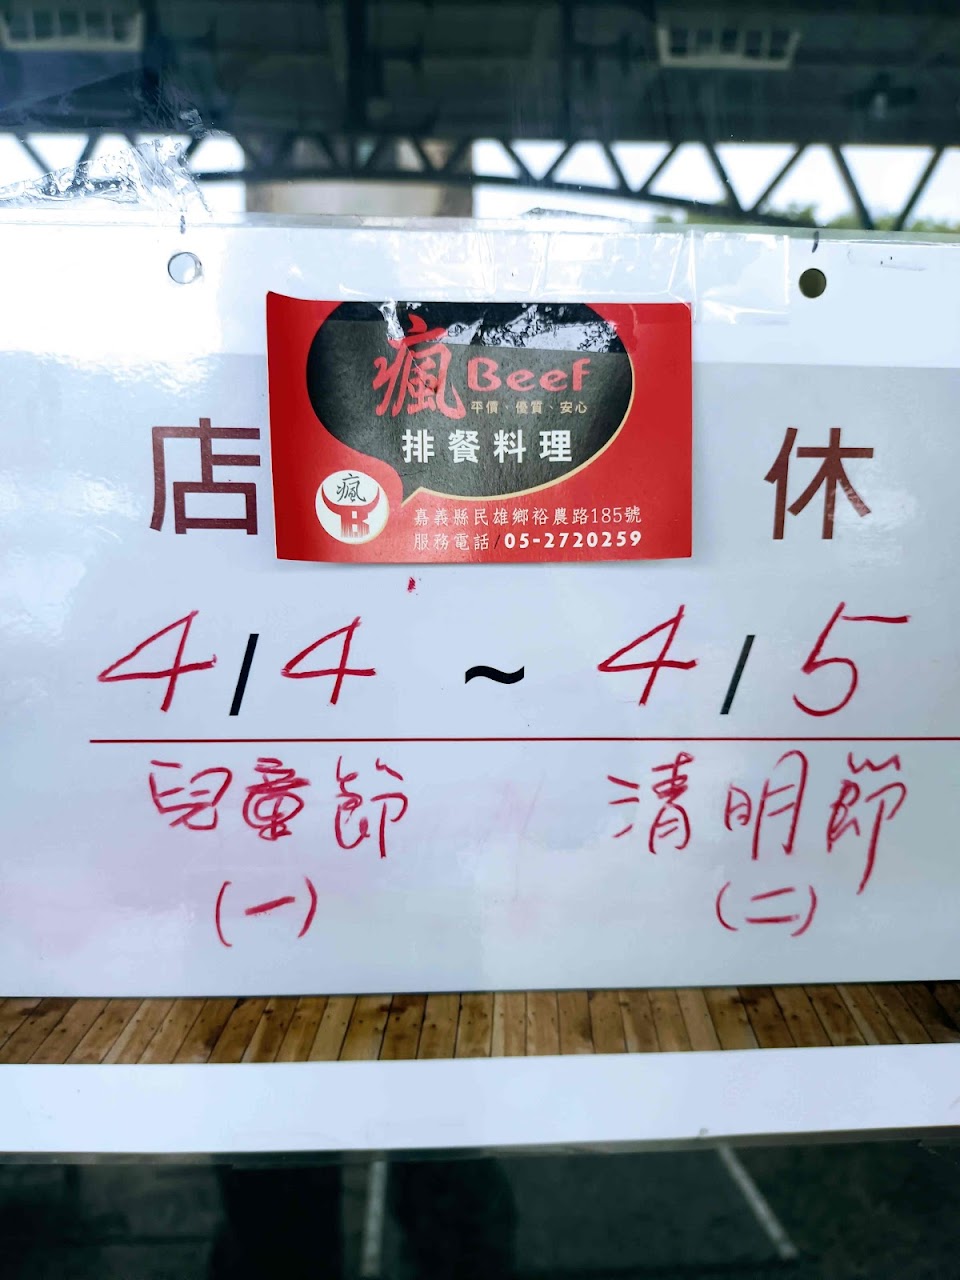 瘋 Beef
平價、優質、安心
排餐料理
瘋
嘉義縣民雄鄉裕農路185號
服務電話/05-2720259
店 休
4/4 ~ 4/5
兒童節 清明節
(一) (二)